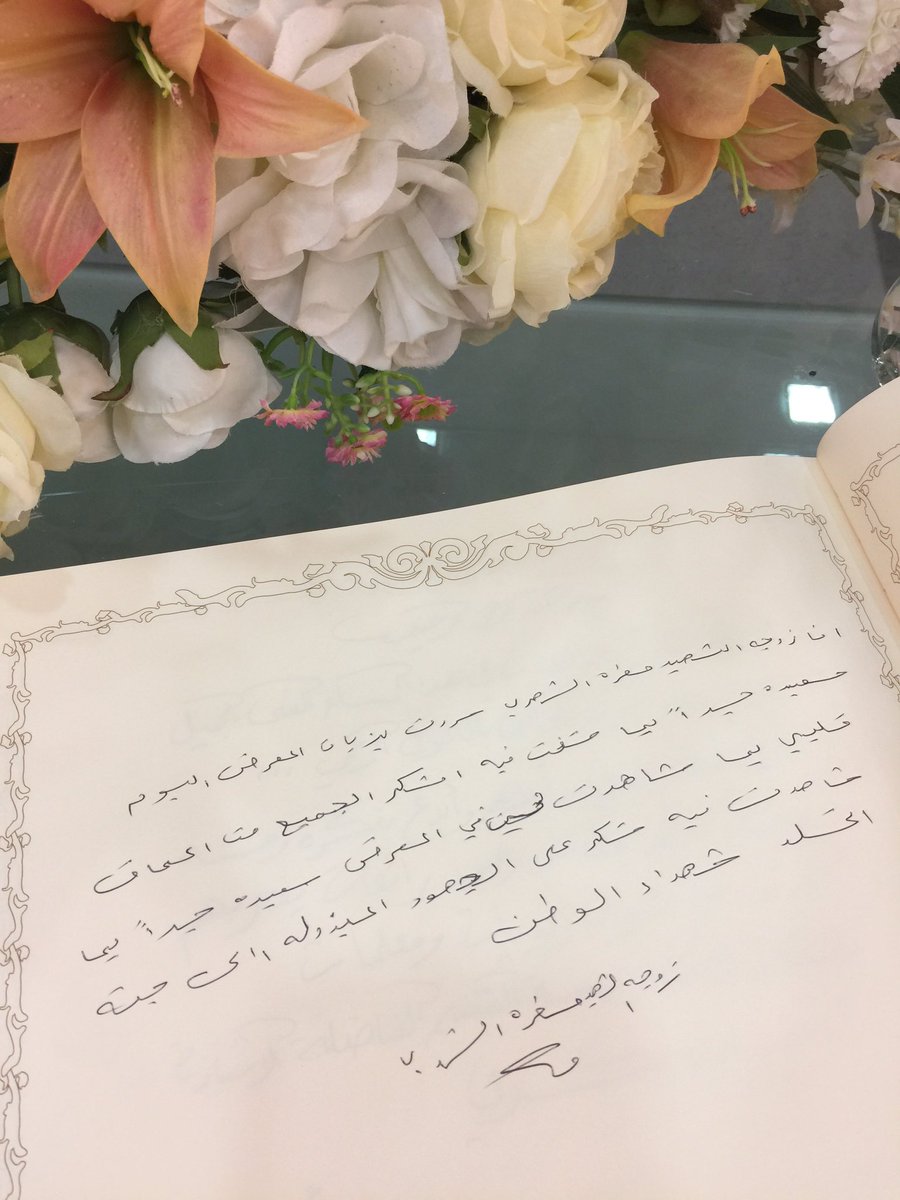 انا زوجه الشهيد مسفره الشهري سررت بزيارة المعرض اليوم
سعيده جيداً بما شفت فيه اشكر الجميع من اعماق
قلبي بما شاهدت في المعرض سعيده جيداً بما
شاهدت فيه شكر على الجهود المبذوله الى جنة
الخلد شهداء الوطن
زوجه الشهيد مسفره الشهري